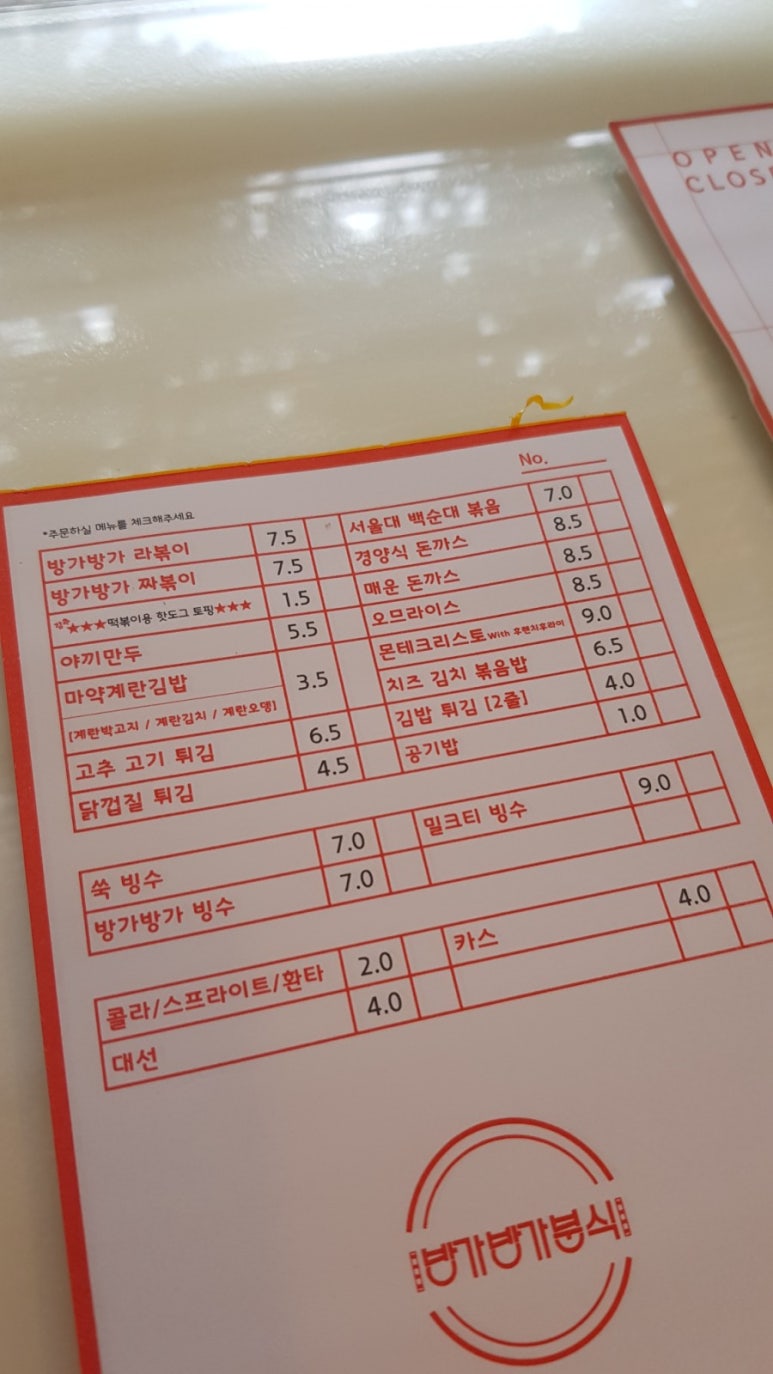 OPEN
CLOS
No.
*주문하실 메뉴를 체크해주세요
방가방가 라볶이 7.5
방가방가 짜볶이 7.5
★★★떡볶이용 핫도그 토핑★★★ 1.5
야끼만두 5.5
마약계란김밥 3.5
[계란박고지 / 계란김치 / 계란오뎅]
고추 고기 튀김 6.5
닭껍질 튀김 4.5
서울대 백순대 볶음 7.0
경양식 돈까스 8.5
매운 돈까스 8.5
오므라이스 8.5
몬테크리스토With 후렌치후라이 9.0
치즈 김치 볶음밥 6.5
김밥 튀김 [2줄] 4.0
공기밥 1.0
쑥 빙수 7.0
방가방가 빙수 7.0
밀크티 빙수 9.0
콜라/스프라이트/환타 2.0
대선 4.0
카스 4.0
방가방가분식